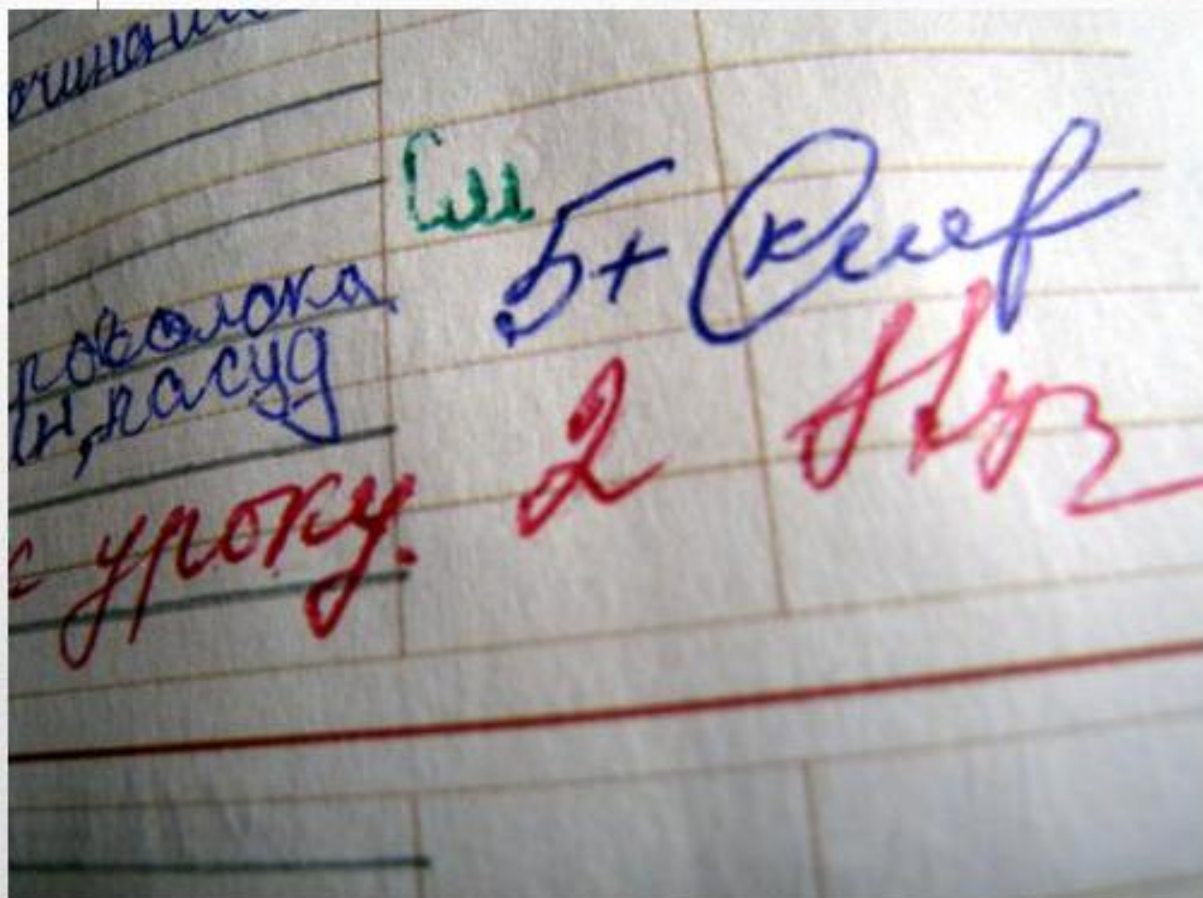 очинени
См
роволока 5+
н, расуд
к уроку. 2